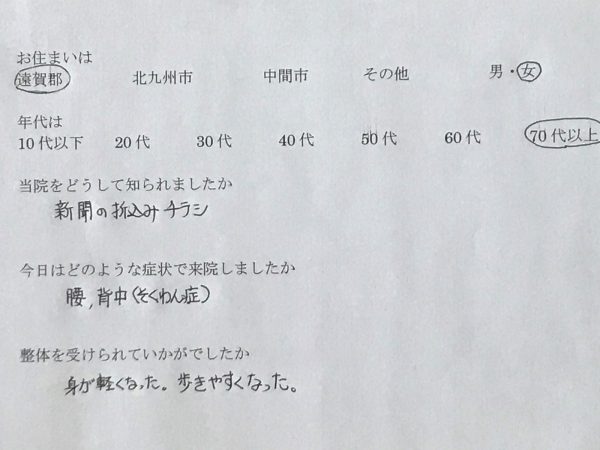 お住まいは
遠賀郡 北九州市 中間市 その他 男・女
年代は
10代以下 20代 30代 40代 50代 60代 70代以上
当院をどうして知られましたか
新聞の折込みチラシ
今日はどのような症状で来院しましたか
腰,背中(そくわん症)
整体を受けられていかがでしたか
身が軽くなった。歩きやすくなった。